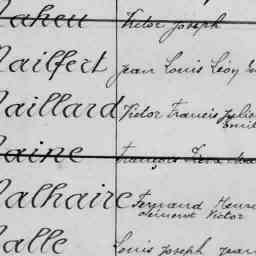 Maheu Victor Joseph
Mailfert Jean Louis Léon
Maillard Victor Francis Julien
Emile
Maine François
Malhaire Fernand Henri
Clément Victor
Malle Louis Joseph Jean